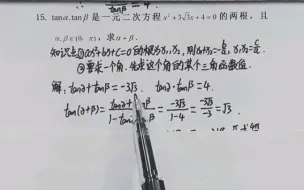 tanβ
15. tanα,tanβ 是一元二次方程 x²+3√3x+4=0 的两根，且
α,β∈(0, π)，求 α+β.
知识点①ax²+bx+c=0的根为x₁,x₂, 则x₁+x₂=-b/a, x₁·x₂=c/a.
②要求一个角.先求这个角的某个三角函数值.
解: tanα+tanβ=-3√3. tanα·tanβ=4.
tan(α+β)=(tanα+tanβ)/(1-tanα·tanβ)=-3√3/(1-4)=-3√3/-3=√3.